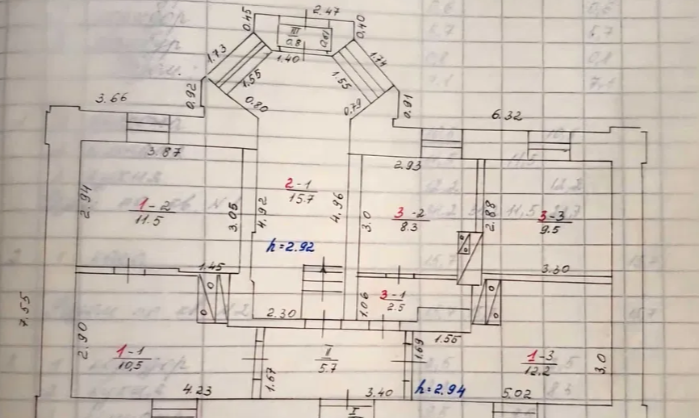 2.47
0.45
0.40
III
0.8
0.67
1.73
1.74
1.40
1.55
1.55
0.92
0.80
0.79
0.91
3.66
6.32
3.87
2.93
2.94
1-2
11.5
3.05
4.92
2-1
15.7
4.96
3.0
3-2
8.3
2.88
3-3
9.5
h=2.92
1.45
3.30
3-1
2.5
1.06
2.30
7.55
2.90
1-1
10,5
1.67
II
5.7
1.69
1.55
1-3
12.2
3.0
4.23
3.40
h=2.94
5.02
I